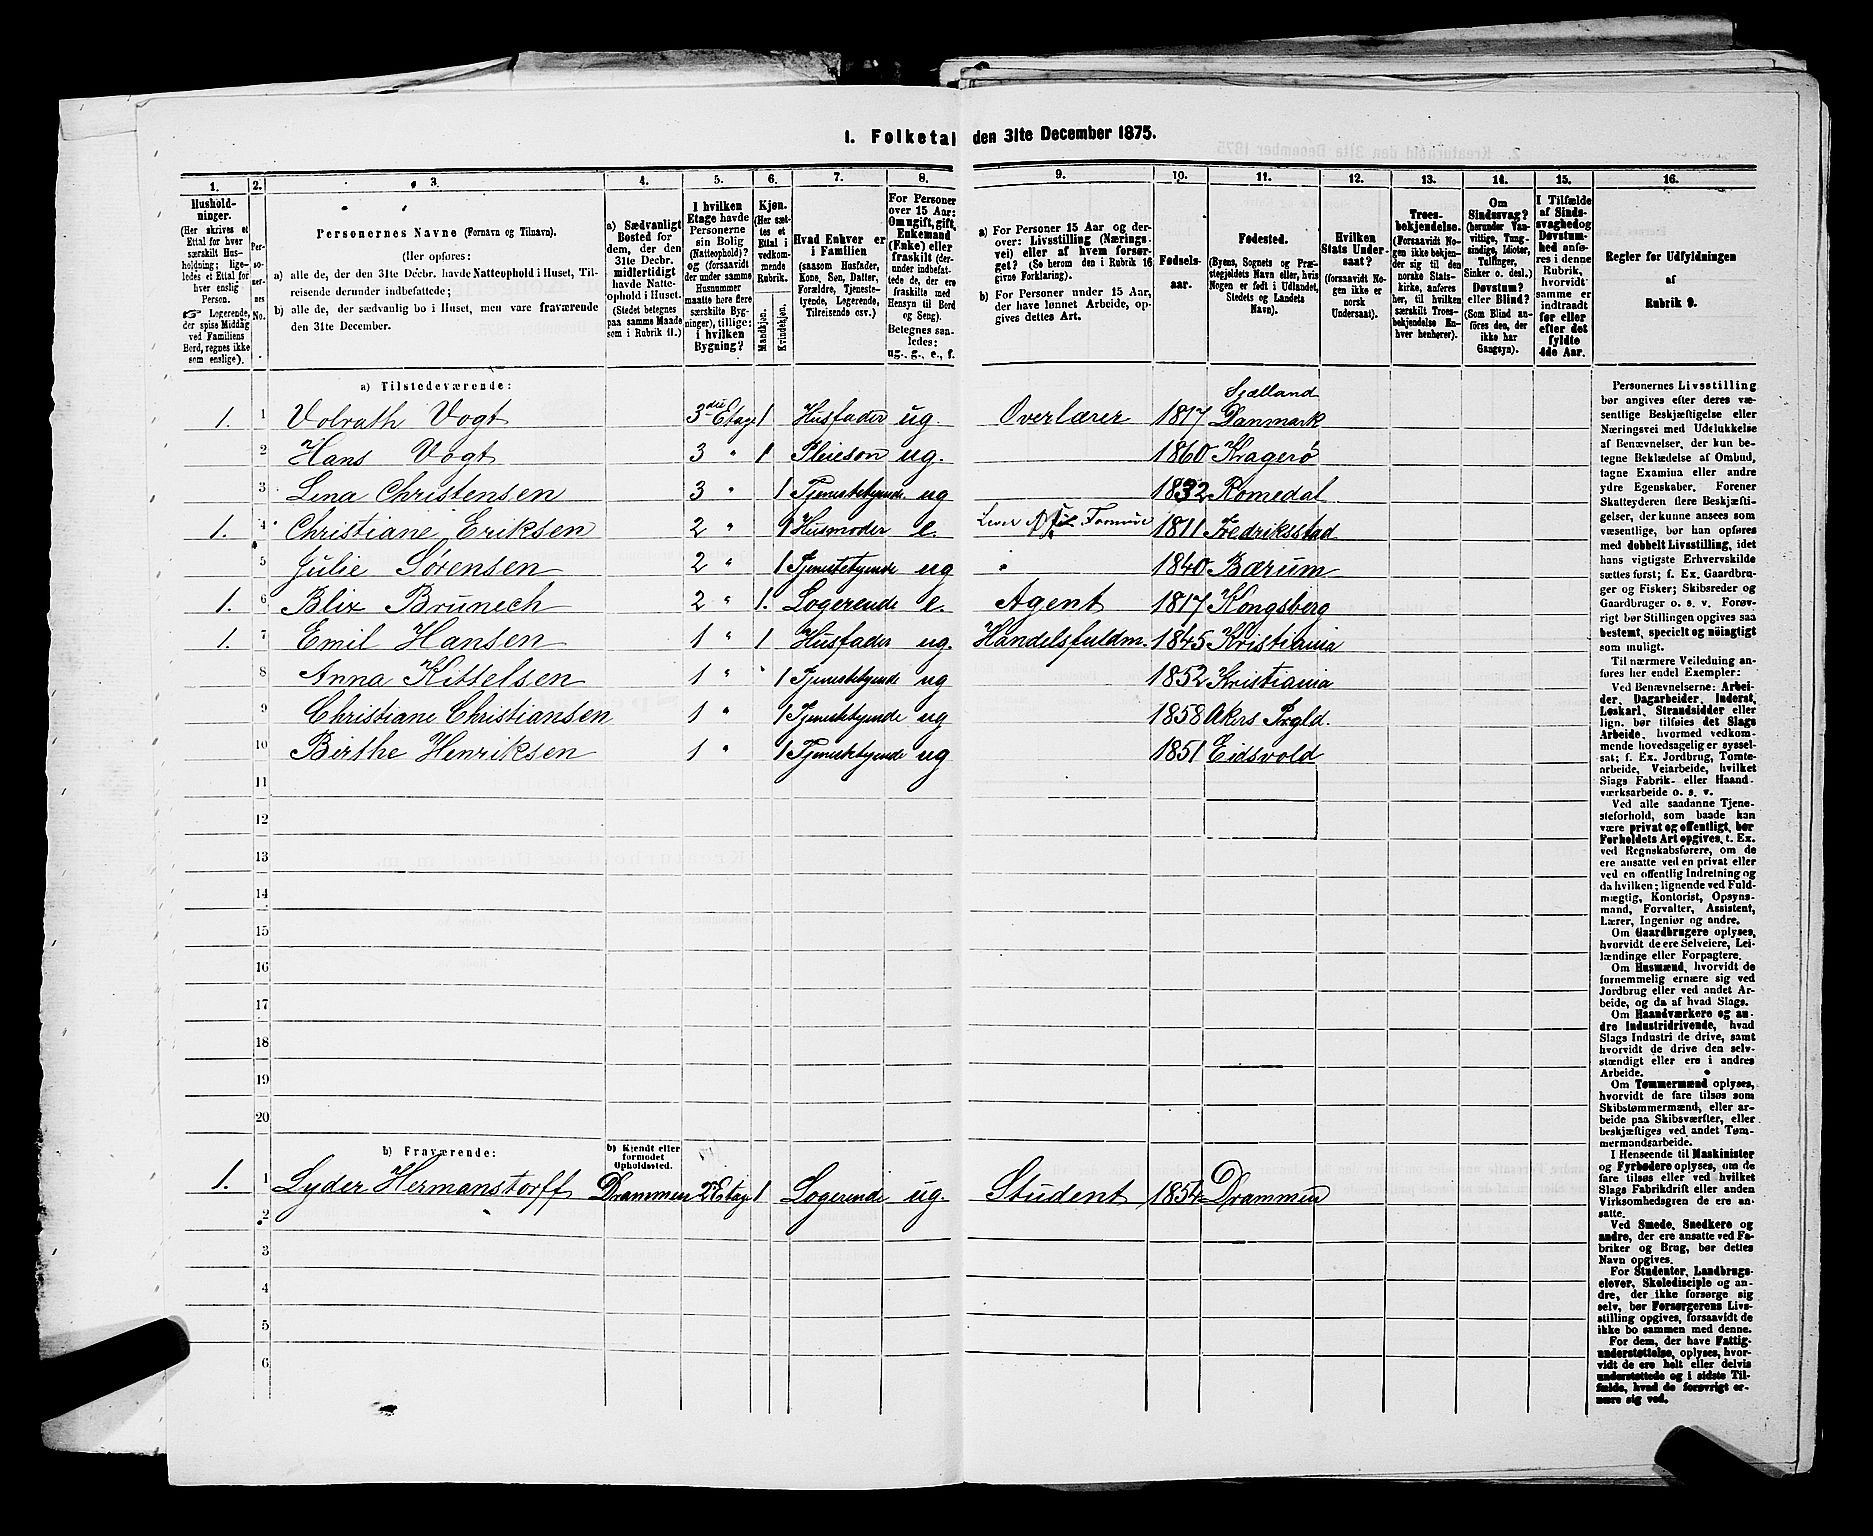 1. Folketal den 31te December 1875.
1. 2. 3. 4. 5. 6. 7. 8. 9. 10. 11. 12. 13. 14. 15. 16.
Hushold-
ninger.
(Her skrives et
Ettal for hver
særskilt Hus-
holdning; lige-
ledes et Ettal for
hver enslig
Person.
Logerende,
der spise Middag
ved Familiens
Bord, regnes ikke
som enslige).
Per-
so-
ner-
nes
No.
Personernes Navne (Fornavn og Tilnavn).
(Her opføres:
a) alle de, der den 31te Decbr. havde Natteophold i Huset, Til-
reisende derunder indbefattede;
b) alle de, der sædvanlig bo i Huset, men vare fraværende
den 31te December.
a) Sædvanligt
Bosted for
dem, der den
31te Decbr.
midlertidigt
havde Natte-
ophold i Huset.
(Stedet betegnes
paa samme Maade
som i Rubrik 11.)
I hvilken
Etage havde
Personerne
sin Bolig
(Natteophold)?
og (forsaavidt
der under samme
Husnummer
maatte høre flere
særskilte Byg-
ninger), tillige:
i hvilken
Bygning?
Kjøn.
(Her sæt-
tes et
Ettal i
vedkom-
mende
Rubrik.
Mandkjøn.
Kvindekjøn.
Hvad Enhver er
i Familien
(saasom Husfader,
Kone, Søn, Datter,
Forældre, Tjeneste-
tyende, Logerende,
Tilreisende osv.)
For Personer
over 15 Aar:
Om ugift, gift,
Enkemand
(Enke) eller
fraskilt (der-
under indbefat-
tede de, der ere
fraskilte med
Hensyn til Bord
og Seng).
Betegnes saa-
ledes:
ug., g., e., f.
a) For Personer 15 Aar og der-
over: Livsstilling (Nærings-
vei) eller af hvem forsør-
get? (Se herom den i Rubrik 16
givne Forklaring).
b) For Personer under 15 Aar,
der have lønnet Arbeide, op-
gives dettes Art.
Fødsels-
aar.
Fødested.
(Byens, Sognets og Præ-
stegjeldets Navn eller, hvis
Nogen er født i Udlandet,
Stedets og Landets
Navn).
Hvilken
Stats Under-
saat?
(forsaavidt No-
gen ikke er
norsk
Undersaat).
Troes-
bekjendelse.
(Forsaavidt No-
gen ikke bekjen-
der sig til den
norske Stats-
kirke, anføres
her, til hvilken
særskilt Troes-
bekjendelse En-
hver henhører).
Om
Sindssvag?
(herunder Van-
vittige, Tung-
sindige, Idioter,
Tullinger,
Sinker o. desl.)
Døvstum?
eller Blind?
(Som Blind an-
føres den, der
ikke har
Gangsyn).
I Tilfælde
af Sinds-
svaghed og
Døvstum-
hed anfø-
res i denne
Rubrik,
hvorvidt
samme er
indtraadt
før eller
efter det
fyldte
4de Aar.
Regler for Udfyldningen
af
Rubrik 9.
a) Tilstedeværende:
1. 1 Volrath Vogt 3die Etage 1 Husfader ug. Overlærer 1817 Sjælland Danmark
2 Hans Vogt 3 " 1 Pleieson ug. 1860 Kragerø
3 Lina Christensen 3 " 1 Tjenestetyende ug 1832 Romedal
1. 4 Christiane Eriksen 2 " 1 Husmoder e. 1811 Fredriksstad
5 Julie Sørensen 2 " 1 Tjenestetyende ug 1840 Bærum
1. 6 Blix Brunech 2 " 1. Logerende e. Agent 1817 Kongsberg
1. 7 Emil Hansen 1 " 1 Husfader ug. Handelsfuldm. 1845 Kristiania
8 Anna Kittelsen 1 " 1 Tjenestetyende ug 1852 Kristiania
9 Christiane Christiansen 1 " 1 Tjenestetyende ug 1858 Akers Prgld
10 Birthe Henriksen 1 " 1 Tjenestetyende ug 1851 Eidsvold
11
12
13
14
15
16
17
18
19
20
b) Fraværende:
b) Kjendt eller
formodet
Opholdssted.
1. 1 Lyder Hermanstorff Drammen 2 Etage 1. Logerende ug. Student 1854 Drammen
2
3
4
5
6
Personernes Livsstilling
bør angives efter deres væ-
sentlige Beskjæftigelse eller
Næringsvei med Udelukkelse
af Benævnelser, der kun be-
tegne Beklædelse af Ombud,
tagne Examina eller andre
ydre Egenskaber. Forener
Skatteyderen flere Beskjæfti-
gelser, der kunne ansees som
væsentlige, bør han opføres
med dobbelt Livsstilling, idet
hans vigtigste Erhvervskilde
sættes først; f. Ex. Gaardbru-
ger og Fisker; Skibsreder og
Gaardbruger o. s. v. Forøv-
rigt bør Stillingen opgives saa
bestemt, specielt og nøiagtigt
som muligt.
Til nærmere Veiledning an-
føres her endel Exempler:
Ved Benævnelserne: Arbei-
der, Dagarbeider, Inderst,
Løskarl, Strandsidder eller
lign. bør tilføies det Slags
Arbeide, hvormed vedkom-
mende hovedsagelig er syssel-
sat; f. Ex. Jordbrug, Tomte-
arbeide, Veiarbeide, hvilket
Slags Fabrik- eller Haand-
værksarbeide o. s. v.
Ved alle saadanne Tjene-
steforhold, som baade kan
være privat og offentligt, bør
Forholdets Art opgives, t. Ex.
ved Regnskabsførere, om de
ere ansatte ved en privat eller
ved en offentlig Indretning og
da hvilken; lignende ved Fuld-
mægtig, Kontorist, Opsyns-
mand, Forvalter, Assistent,
Lærer, Ingeniør og andre.
Om Gaardbrugere oplyses,
hvorvidt de ere Selveiere, Lei-
lændinge eller Forpagtere.
Om Husmænd, hvorvidt de
fornemmelig ernære sig ved
Jordbrug eller ved andet Ar-
beide, og da af hvad Slags.
Om Haandværkere og an-
dre Industridrivende, hvad
Slags Industri de drive, samt
hvorvidt de drive den selv-
stændigt eller ere i andres
Arbeide.
Om Tømmermænd oplyses,
hvorvidt de fare tilsøs som
Skibstømmermænd, eller ar-
beide paa Skibsværfter, eller
beskjæftiges ved andet Tøm-
mermandsarbeide.
I Henseende til Maskinister
og Fyrbødere oplyses, om de
fare tilsøs eller ved hvilket
Slags Fabrikdrift eller anden
Virksomhedsgren de ere an-
satte.
Ved Smede, Snedkere og
andre, der ere ansatte ved Fa-
briker og Brug, bør dettes
Navn opgives.
For Studenter, Landbrugs-
elever, Skoledisciple og an-
dre, der ikke forsørge sig
selv, bør Forsørgerens Livs-
stilling opgives, forsaavidt de
ikke bo sammen med denne.
For dem, der have Fattig-
understøttelse, oplyses, hvor-
vidt de ere helt eller delvis
understøttede og i sidste Til-
fælde, hvad de forøvrigt er-
nære sig ved.